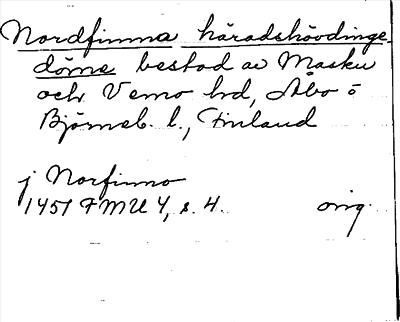 Nordfinna häradshövdinge-
döme bestod av Masku
och Vemo hd, Åbo o
Björneb. l., Finland
j Norfinno
1451 FMU 4, s. 4. orig.